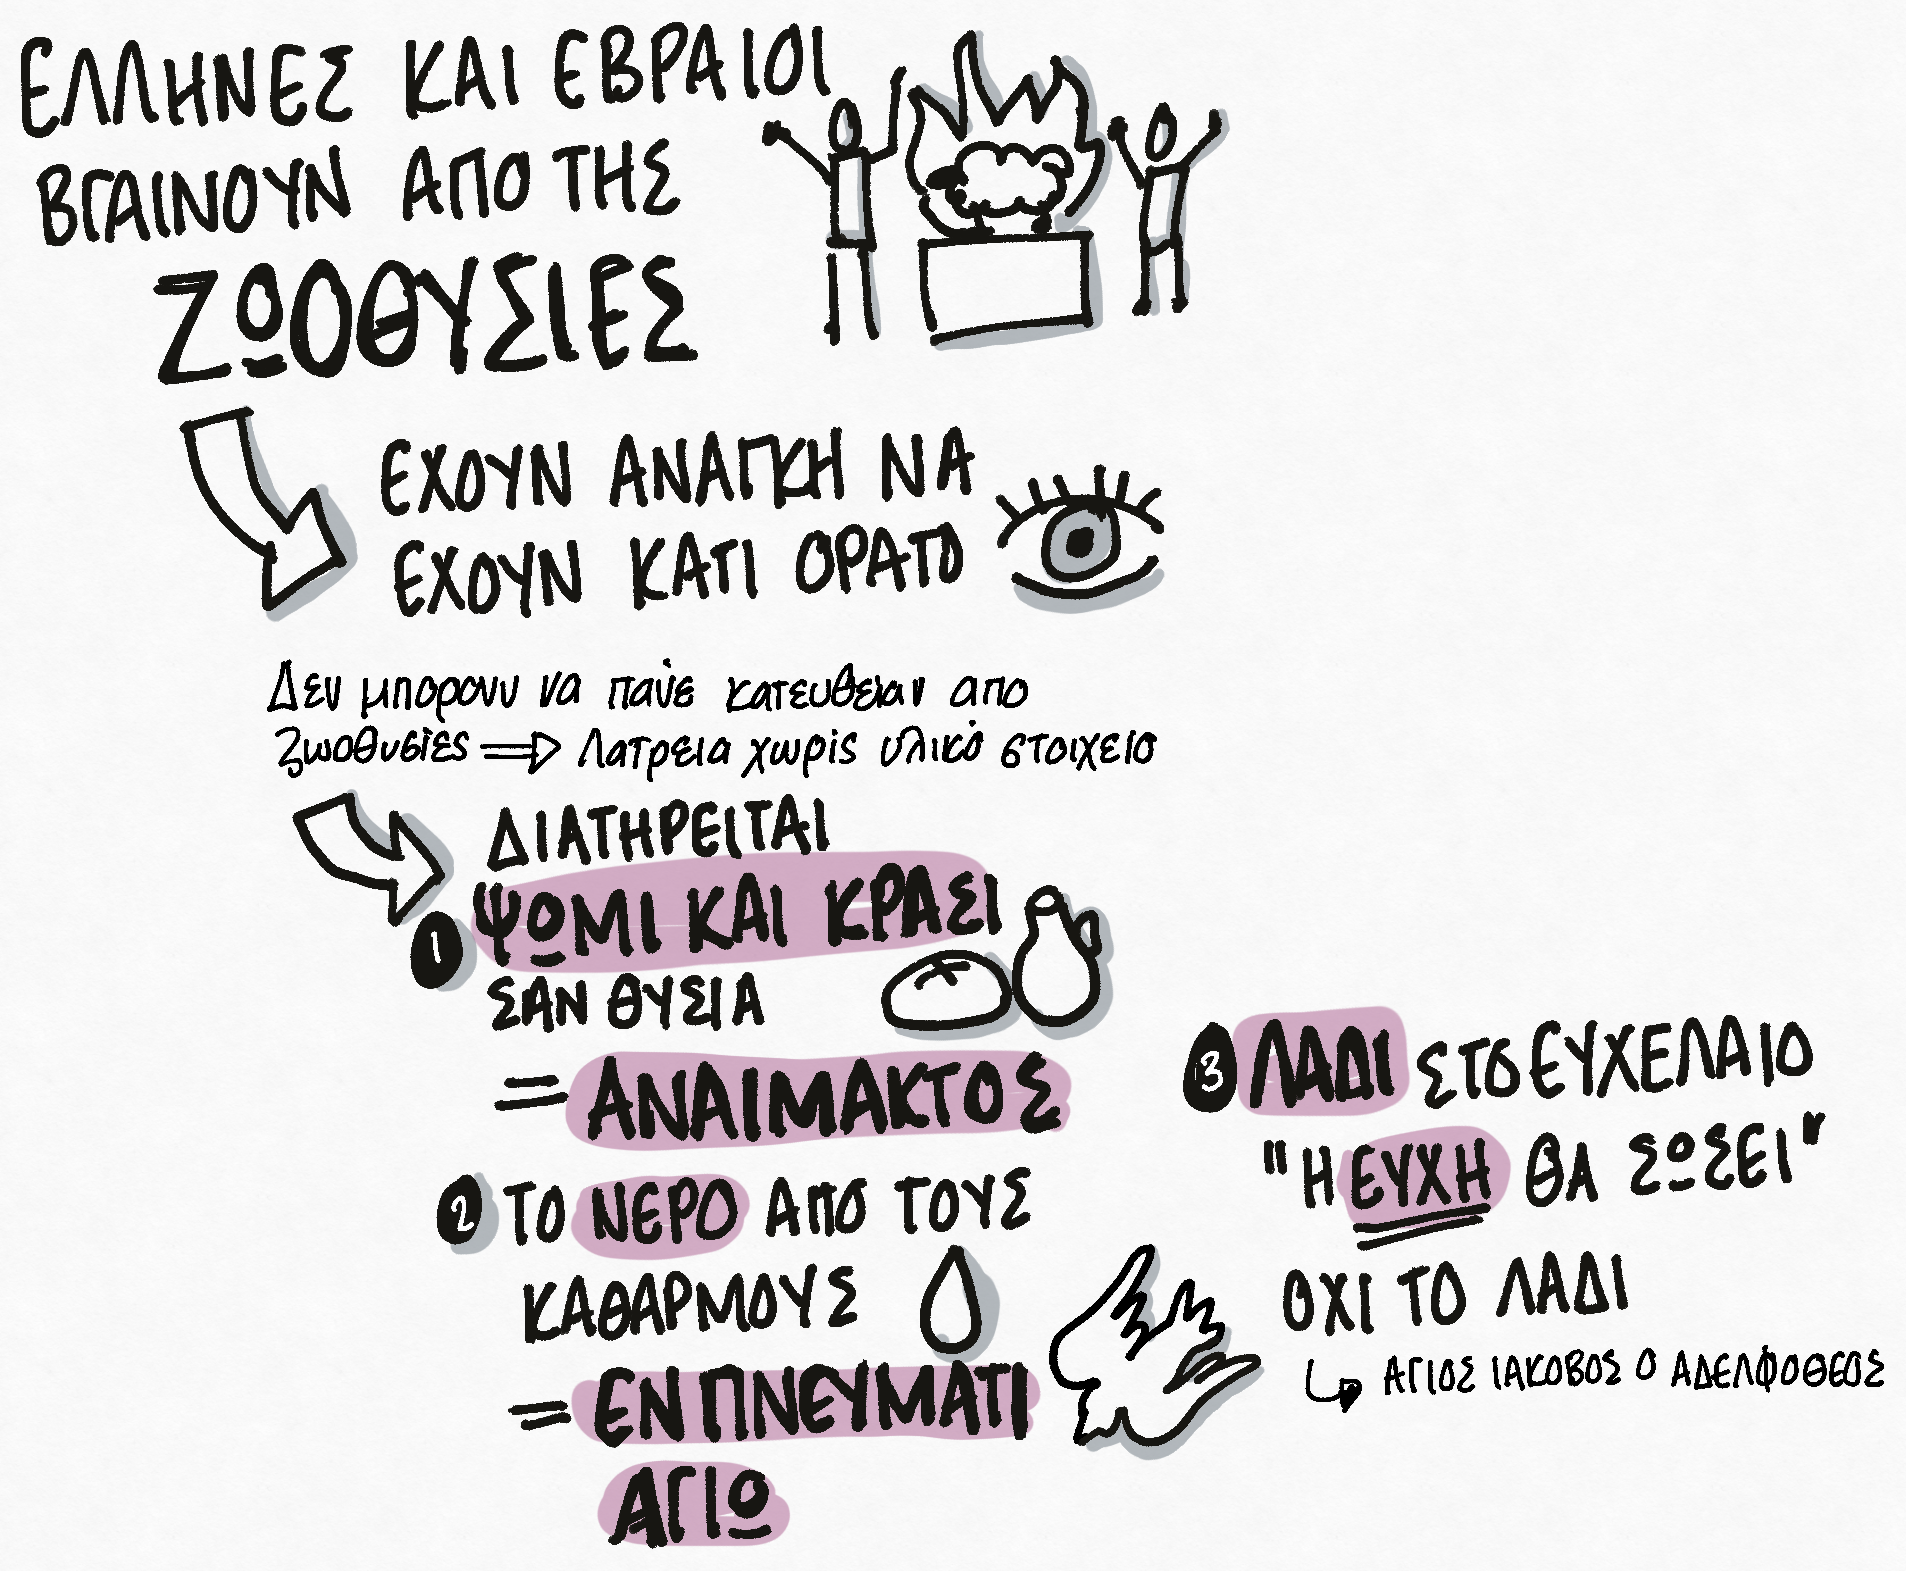 ΕΛΛΗΝΕΣ ΚΑΙ ΕΒΡΑΙΟΙ
ΒΓΑΙΝΟΥΝ ΑΠΟ ΤΗΣ
ΖΩΟΘΥΣΙΕΣ
ΕΧΟΥΝ ΑΝΑΓΚΗ ΝΑ
ΕΧΟΥΝ ΚΑΤΙ ΟΡΑΤΟ
Δεν μπορουν να πανε κατευθειαν απο
ζωοθυσίες ⇒ Λατρεια χωρίς υλικό στοιχειο
ΔΙΑΤΗΡΕΙΤΑΙ
1 ΨΩΜΙ ΚΑΙ ΚΡΑΣΙ
ΣΑΝ ΘΥΣΙΑ
= ΑΝΑΙΜΑΚΤΟΣ
2 ΤΟ ΝΕΡΟ ΑΠΟ ΤΟΥΣ
ΚΑΘΑΡΜΟΥΣ
= ΕΝ ΠΝΕΥΜΑΤΙ
ΑΓΙΩ
3 ΛΑΔΙ ΣΤΟ ΕΥΧΕΛΑΙΟ
"Η ΕΥΧΗ ΘΑ ΣΩΣΕΙ"
ΟΧΙ ΤΟ ΛΑΔΙ
ΑΓΙΟΣ ΙΑΚΟΒΟΣ Ο ΑΔΕΛΦΟΘΕΟΣ